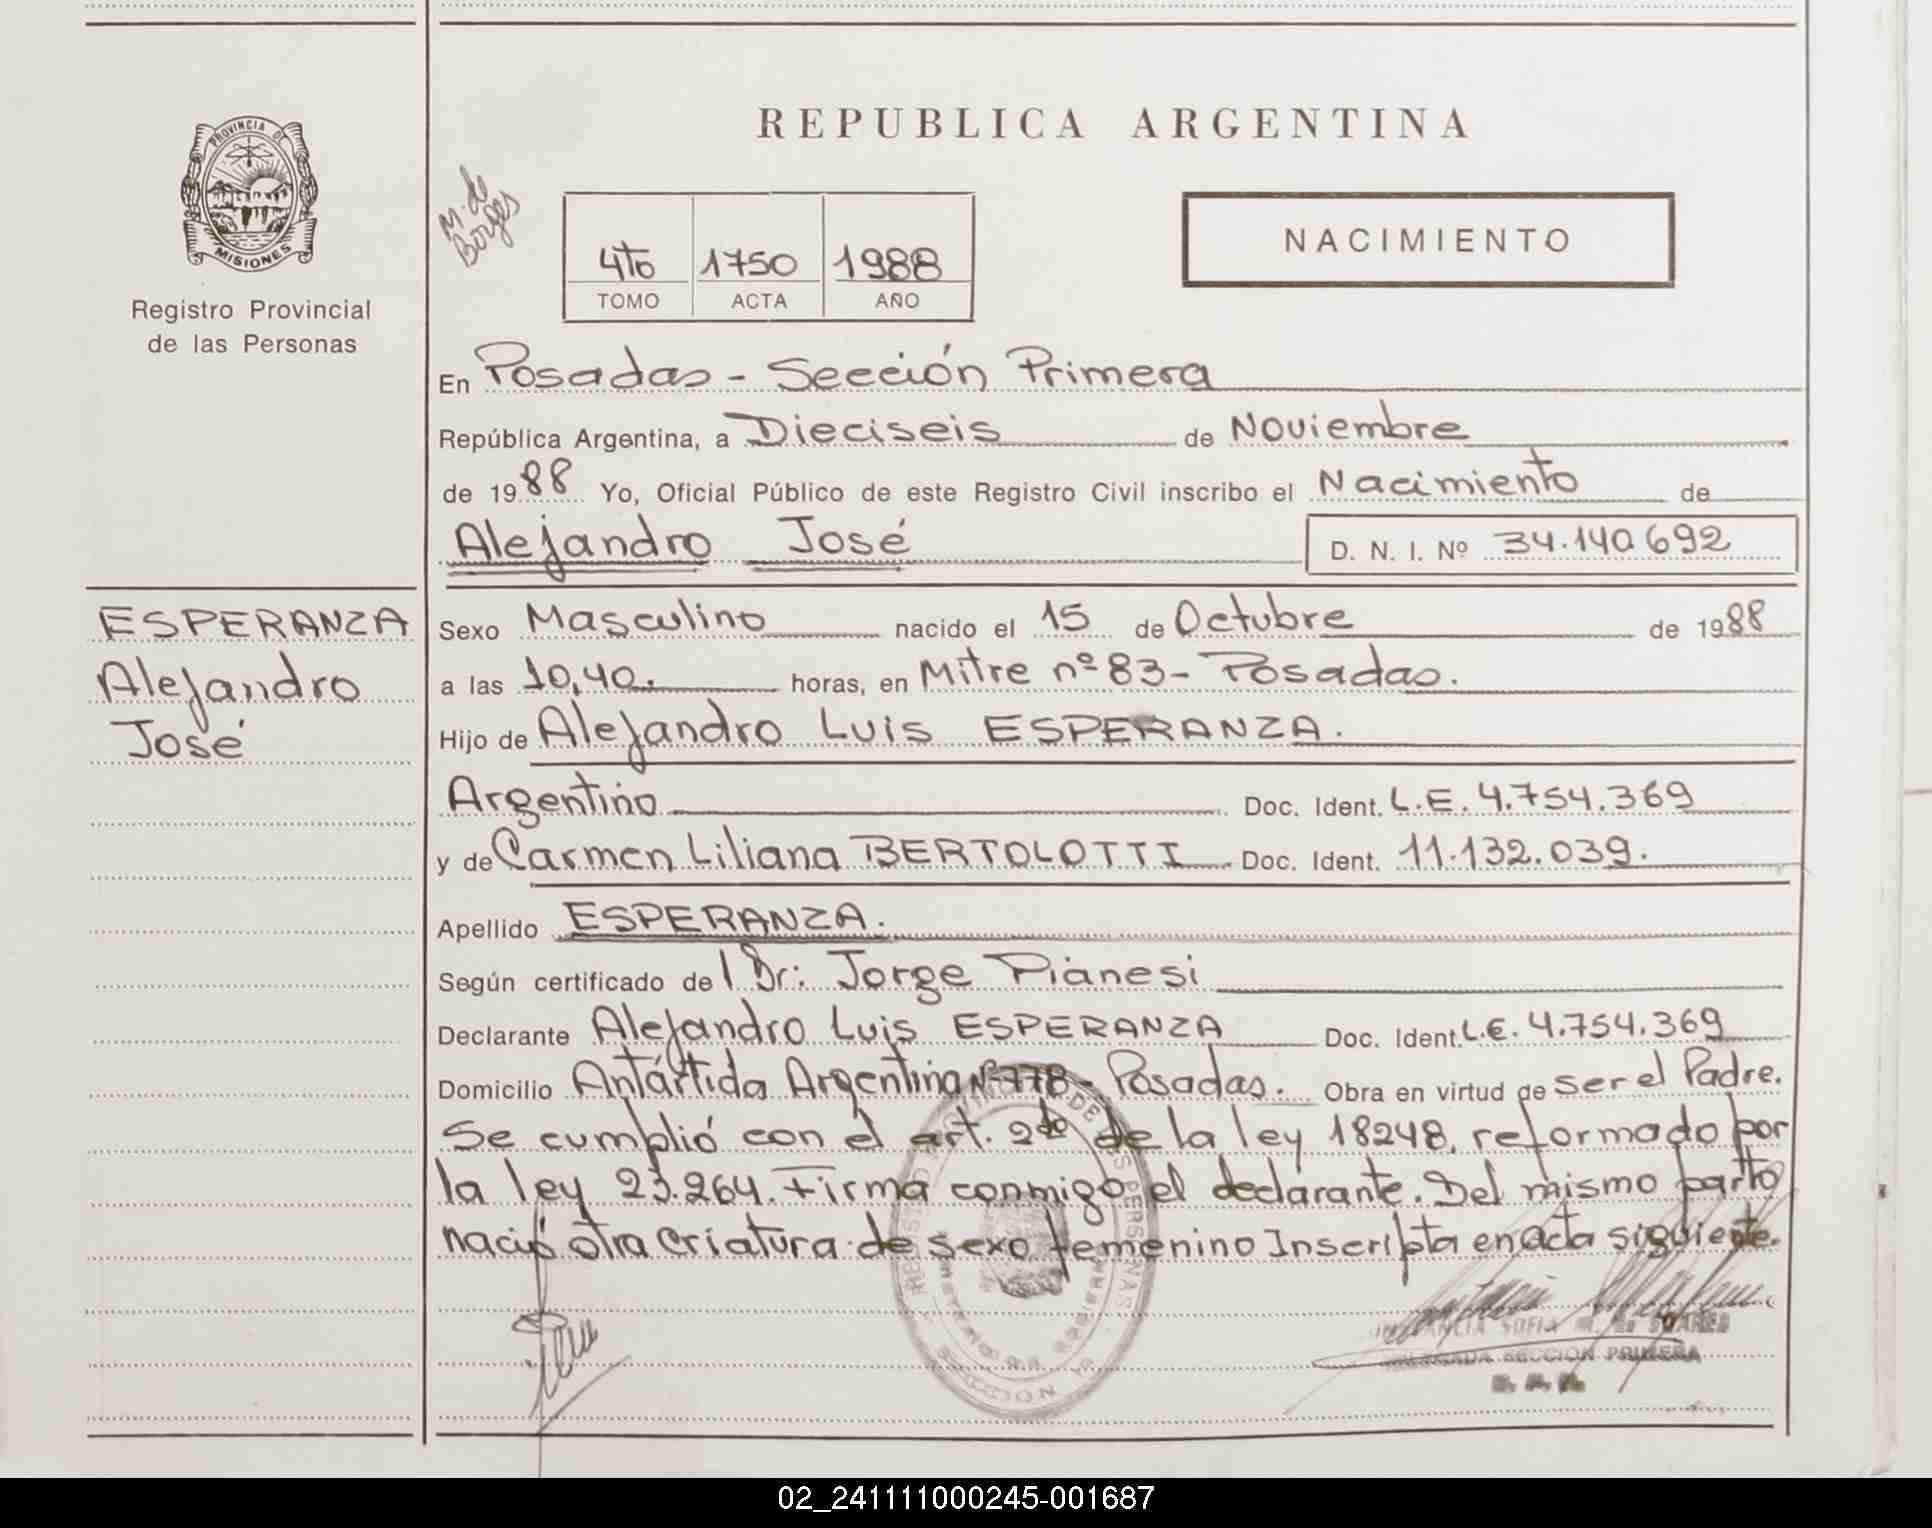 PROVINCIA DE
MISIONES
Registro Provincial
de las Personas
ESPERANZA
Alejandro
José
REPUBLICA ARGENTINA
M. de
Borges
4to 1750 1988
TOMO ACTA AÑO
NACIMIENTO
En Posadas - Sección Primera
República Argentina, a Dieciseis de Noviembre
de 1988 Yo, Oficial Público de este Registro Civil inscribo el Nacimiento de
Alejandro José D. N. I. Nº 34.140.692
Sexo Masculino nacido el 15 de Octubre de 1988
a las 10,40. horas, en Mitre nº 83 - Posadas.
Hijo de Alejandro Luis ESPERANZA.
Argentino Doc. Ident. L.E. 4.754.369
y de Carmen Liliana BERTOLOTTI Doc. Ident. 11.132.039.
Apellido ESPERANZA.
Según certificado de Dr: Jorge Pianesi
Declarante Alejandro Luis ESPERANZA Doc. Ident. L.E. 4.754.369
Domicilio Antártida Argentina Nº 778 - Posadas. Obra en virtud de ser el Padre.
Se cumplió con el art. 2do de la ley 18248, reformado por
la ley 23.264. Firma conmigo el declarante. Del mismo parto
nació otra criatura de sexo femenino Inscripta en acta siguiente.
SOFIA M. de SUARES
DELEGADA SECCION PRIMERA
02_241111000245-001687